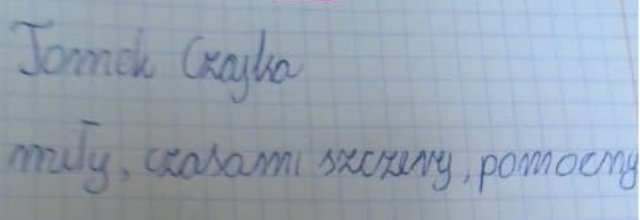 Tomek Czajka
miły, czasami szczery, pomocny